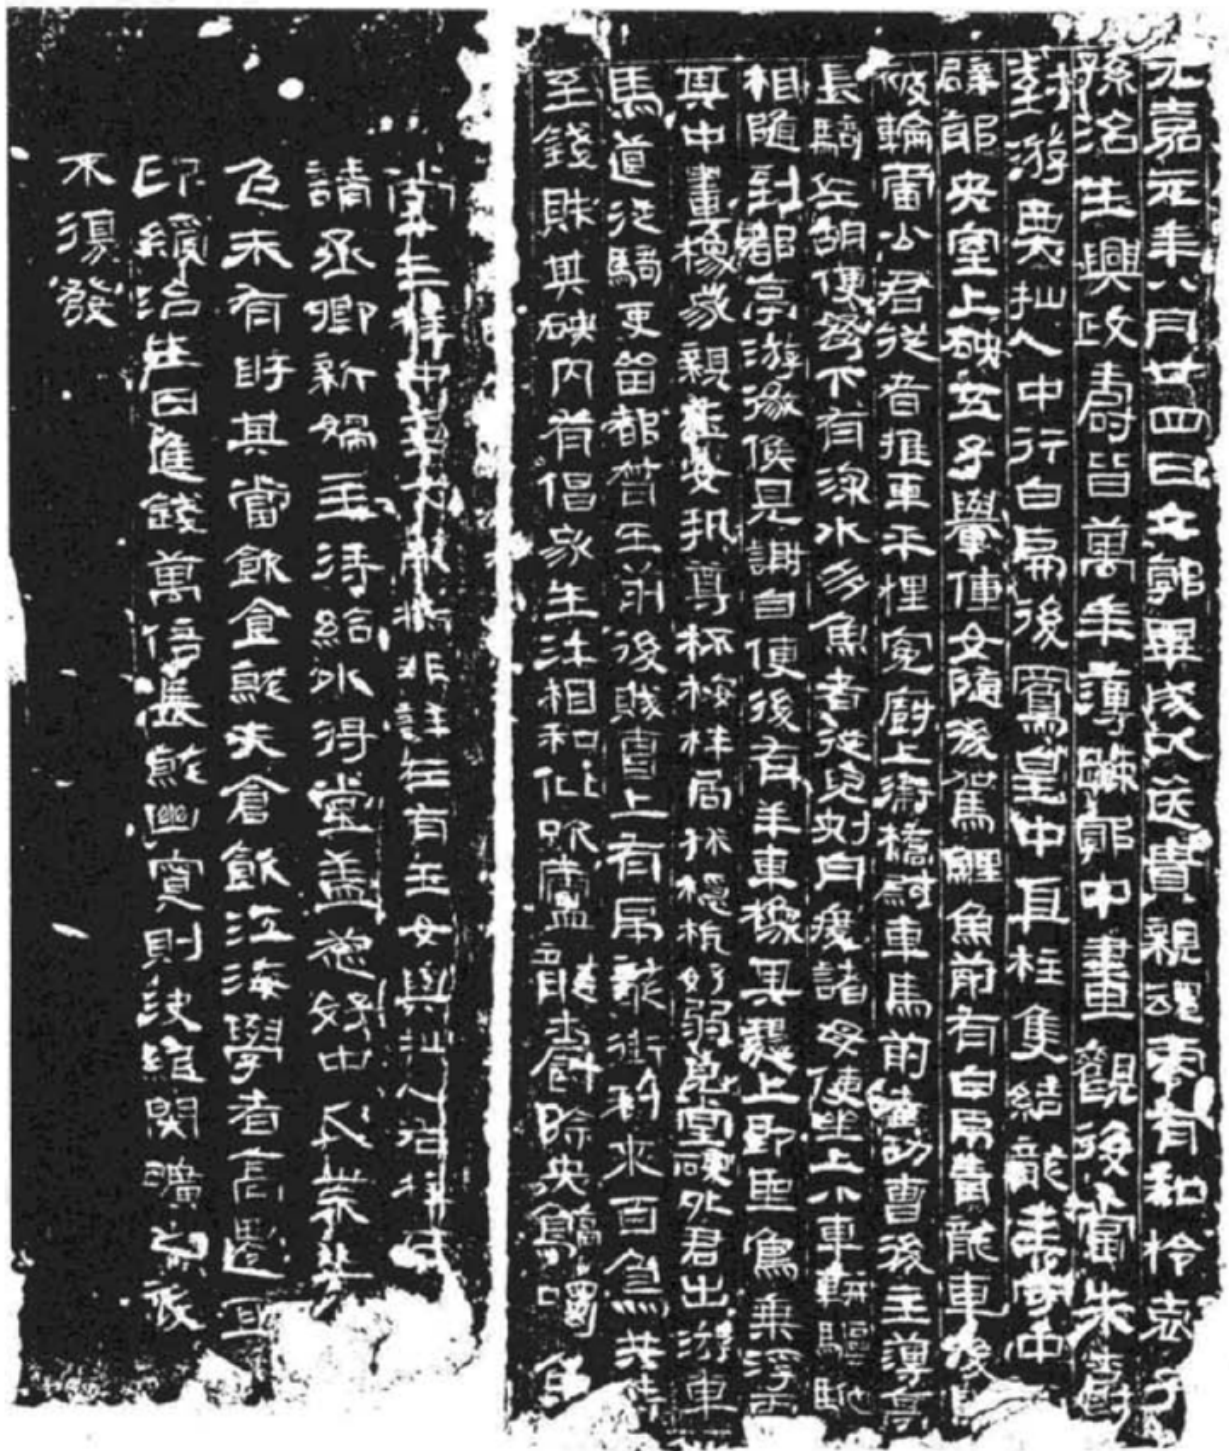 元嘉元年八月廿四日立郭畢成以送貴親魂零有知柃哀子
孫治生興政壽皆萬年薄踈郭中畫觀後當朱爵
對游戲仙人中行白虎後鳳皇中直柱隻結龍主守中
辟邪央室上硤五子轝僮女隨後駕鯉魚前有白虎青龍車後
被輪雷公君從者推車平梩冤廚上衛橋尉車馬前者功曹後主簿亭
長騎左胡使弩下有深水多魚者從兒刺舟渡諸母使坐上小車軿驅馳
相隨到都亭游徼候見謝自便後有羊車橡其上即聖鳥乘浮雲
其中畫橡家親玉女執尊杯桉柈局抹檼杭好弱皃堂硤外君出游車
馬道從騎吏留都督在前後賊曹上有虎龍銜利來百鳥共侍
至錢財其硤內有倡家生汙相和仳吹廬龍爵除央鶴噣魚
堂三柱中龍非詳左有玉女與仙人右柱
請丞卿新婦主侍給水將堂蓋葱好中瓜葉
包末有盱其當飲食就天倉飲江海學者高遷宜
印綬治生日進錢萬倍長就幽冥則決絕閉曠之後
不復發